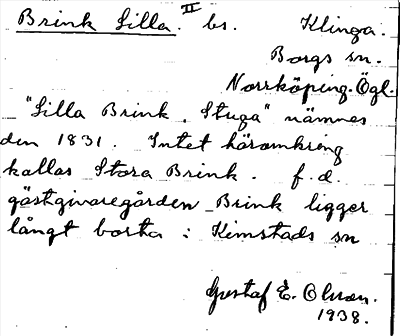 Brink Lilla. II bs. Klinga.
Borgs sn.
Norrköping. Ögl.
"Lilla Brink, Stuga" nämnes
den 1831. Intet häromkring
kallas Stora Brink. f.d.
gästgivaregården Brink ligger
långt borta i Kimstads sn
Gustaf E. Olsson.
1938.